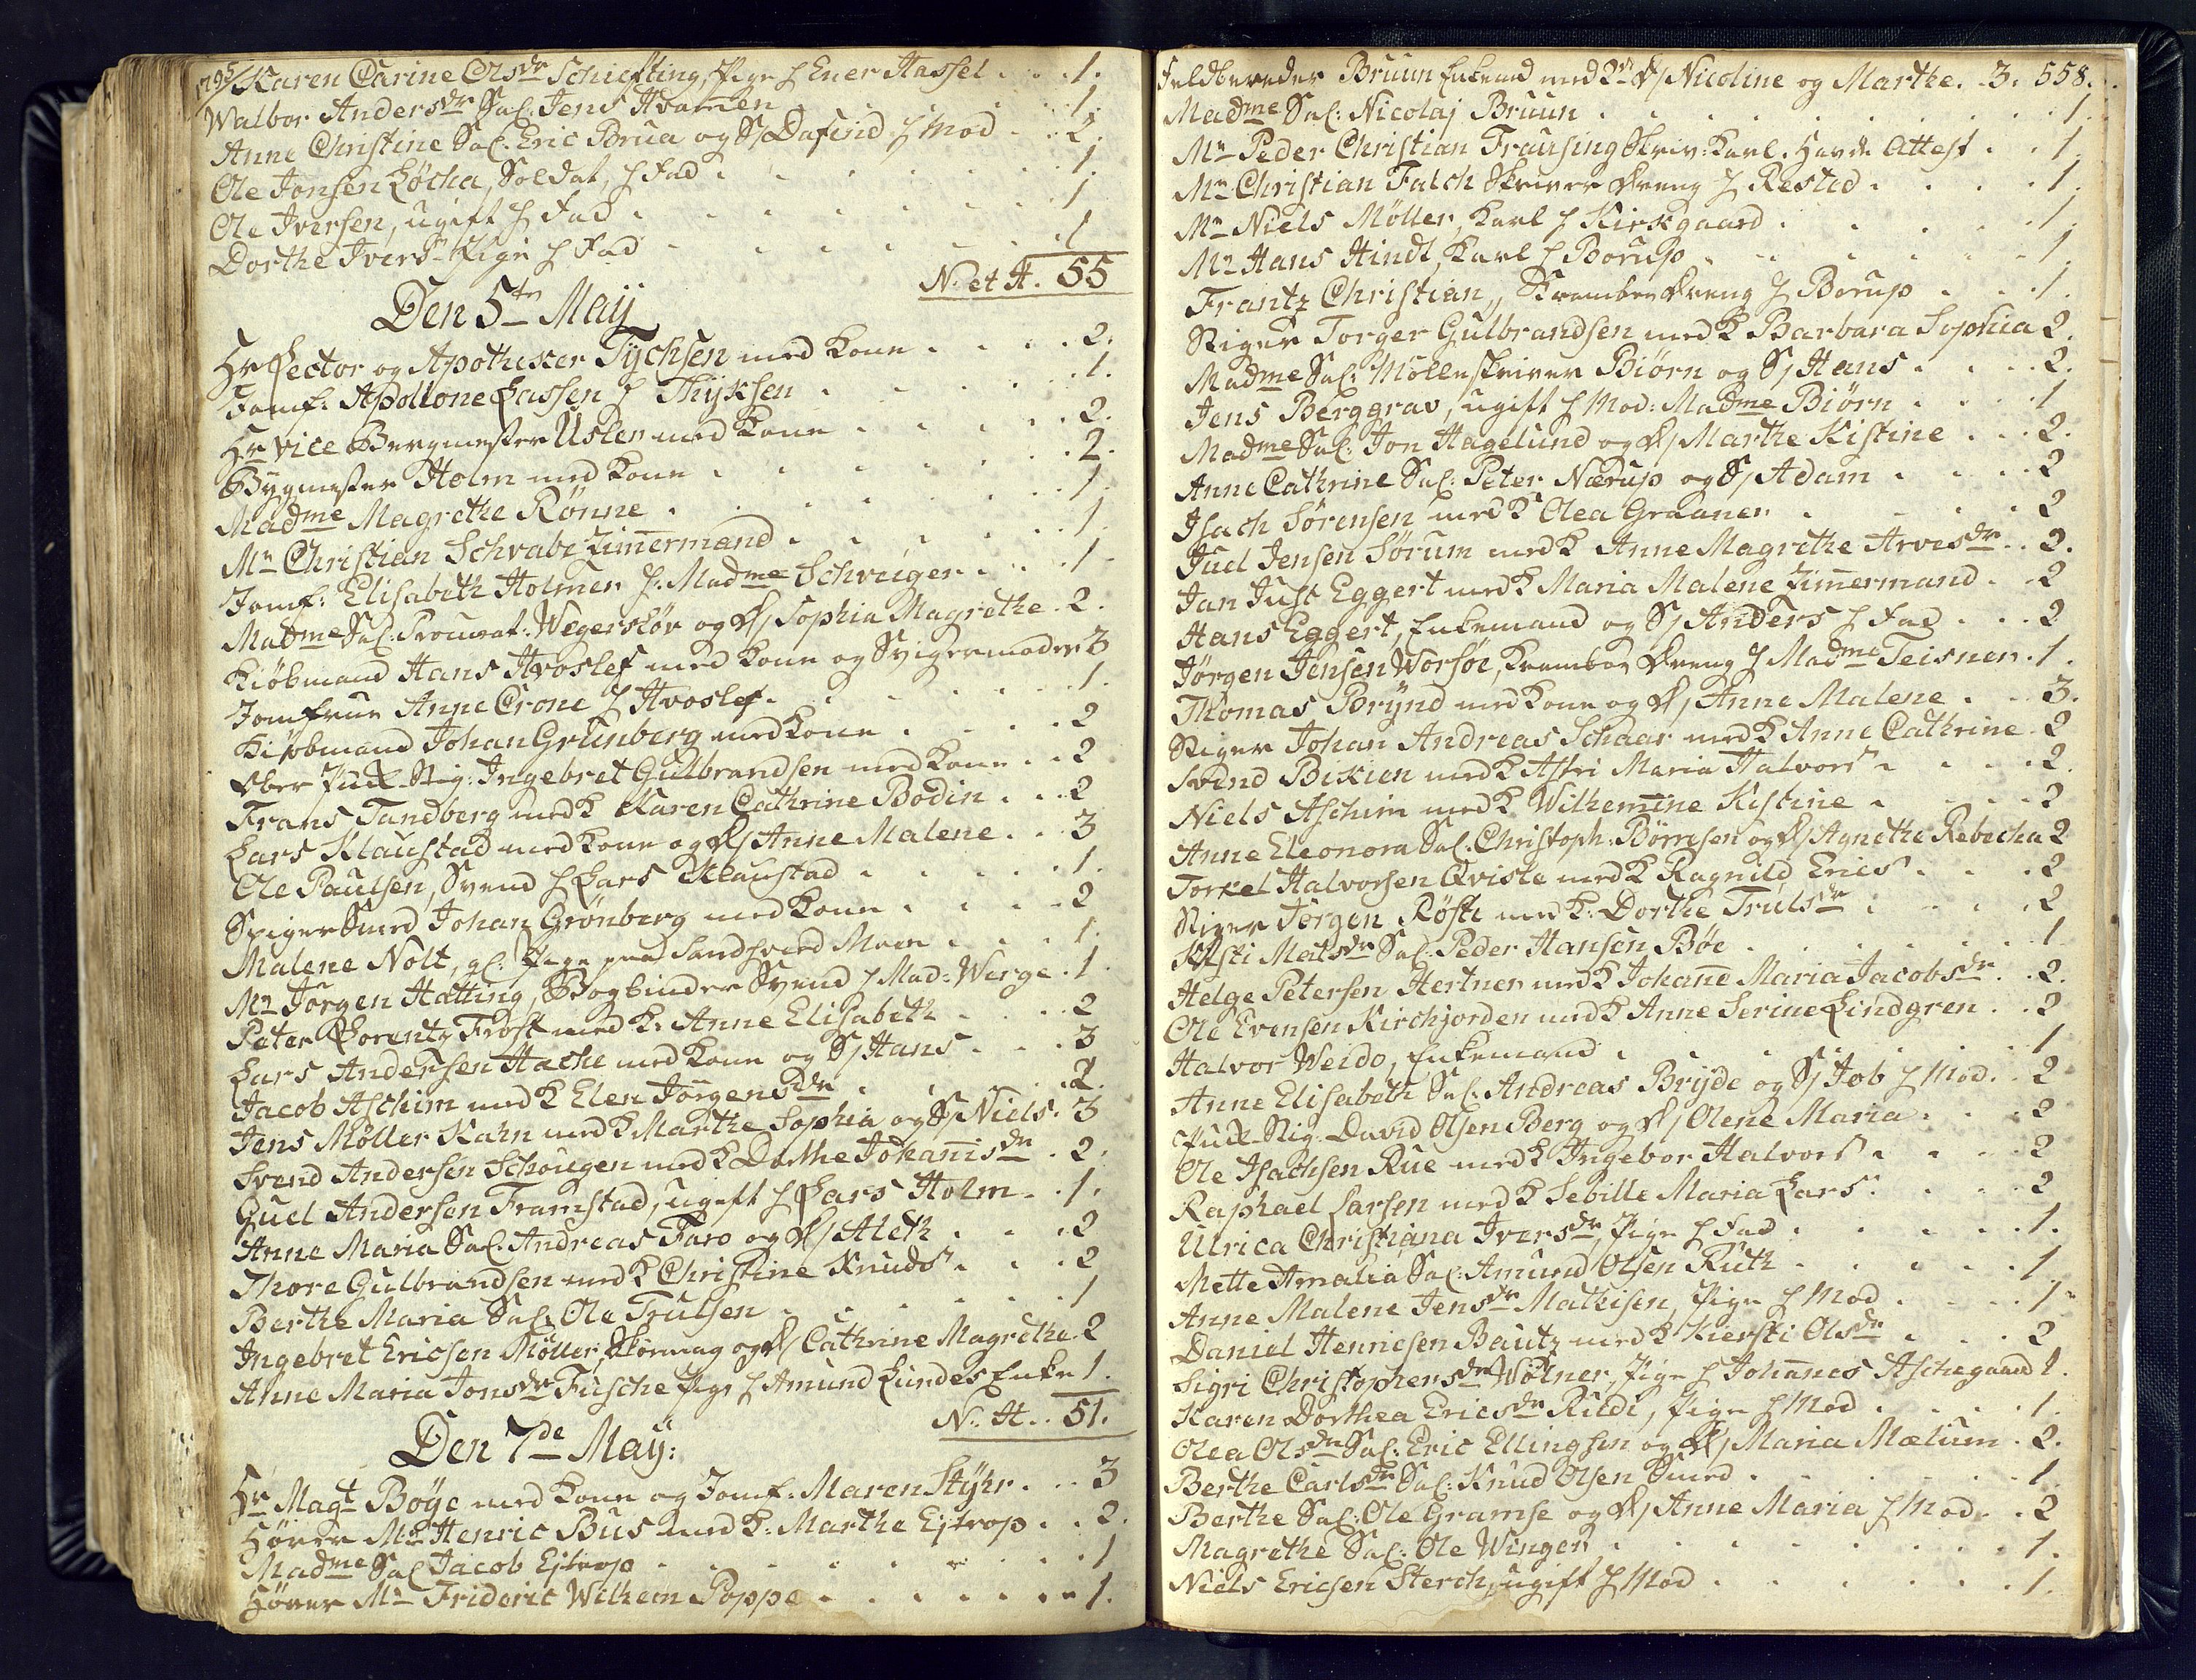 1795/ Karen Carine Olsdr Schiefting, Pige h Ener Hassel . . . 1.
Walbor Andersdr Sal: Jens Hvamen . . . 1.
Anne Christine Sal. Eric Brua og S/ Dafind h Mod . . 2.
Ole Jonsen Løcha, Soldat, h Fad . . . 1.
Ole Iversen, ugift h Fad . . . 1
Dorthe Ivers Pige h Fad . . . 1
N. et H. 55
Den 5te Maij
Hr Lector og Apotheker Tychsen med Kone . . . 2.
Jomf: Apollone Lassen h Thyksen . . . 1.
Hr Vice Bergmester Usler med Kone . . . 2.
Bygmester Holm med Kone . . . 2.
Madme Magrethe Rønne . . . 1.
Mr Christian Schvabe Zimmermand . . . 1
Jomf: Elisabeth Holmer h. Madme Schveiger . . . 1
Madme Sal. Wegersløv og D/ Sophia Magrethe . 2.
Kiøbmand Hans Hvoslef med Kone og Svigermoder 3
Jomfrue Anne Crone h Hvoslef . . . 1.
Kiøbmand Johan Grünberg med Kone . . . 2
Ober Stig: Ingebret Gulbrandsen med Kone . . 2
Frans Tandberg med K Karen Cathrine Bodin . . . 2
Lars Klaustad med Kone og D/ Anne Malene . . 3
Ole Paulsen, Svend h Lars Klaustad . . . 1.
Spigersmed Johan Grønberg med Kone . . . 2
Malene Nolt, gl: Pige paa Sandsverd Moen . . . 1.
Mr Jørgen Hatting, Bogbinder Svend h Mad: Werge . 1.
Peter Lorentz Frost med K. Anne Elisabeth . . . 2
Lars Andersen Hæche med Kone og S/ Hans . . . 3
Jacob Aschim med K Elen Jørgensdr . . . 2.
Jens Møller Kahn med K Marthe Sophia og S/ Niels. 3
Svend Andersen Schougen med K Dorthe Johanisdr . 2.
Guel Andersen Framstad, ugift h Lars Holm . . 1.
Anne Maria Sal. Andreas Faro og D/ Aleth . . . 2
Thore Gulbrandsen med K Christine Knuds . . . 2
Berthe Maria Sal. Ole Trulsen . . . 1
Ingebret Ericsen Møller, og D/ Cathrine Magrethe . 2
Anne Maria Jonsdr Fusche Pige h Amund Lundes Enke 1.
N. H. . 51.
Den 7de Maij:
Hr Magt Bøye med Kone og Jomf: Maren Styhr . . . 3
Hører Mr Henric Bus med K: Marthe Ejtrop . . 2.
Madme Sal Jacob Ejtrop . . . 1
Hører Mr Frideric Wilhem Poppe . . . 1.
Feldbereder Bruun Enkemd med 2 D/ Nicoline og Marthe . 3. 558.
Madme Sal: Nicolaj Bruun . . . 1.
Mr Peder Christian Frausing Skriv: Karl. Havde Attest . . 1
Mr Christian Falch Skriver Dreng h Rested . . . 1.
Mr Niels Møller, Karl h Kirkgaard . . . 1.
Mr Hans Hindt, Karl h Borup . . . 1.
Frantz Christian, Krambod Dreng h Borup . . . 1.
Stiger Torger Gulbrandsen med K Barbara Sophia 2.
Madme Sal: Mølleskriver Biørn og S/ Hans . . . 2.
Jens Berggrav, ugift h Mod: Madme Biørn . . . 1
Madme Sal: Jon Hagelund og D/ Marthe Kistine . . . 2.
Anne Cathrine Sal: Peter Nærup og S/ Adam . . . 2
Isach Sørensen med K Olea Graaner . . . 2
Juel Jensen Sørum med K Anne Magrethe Arvesdr . . 2.
Jan Just Eggert med K Maria Malene Zimmermand . . 2
Hans Eggert, Enkemand og S/ Anders h Fad . . . 2
Jørgen Jensen Worsøe, Krambod Dreng h Madme Teisner . 1.
Thomas Brynd med Kone og D/ Anne Malene . . . 3.
Stiger Johan Andreas Schaar med K Anne Cathrine . 2
Svend Bikien med K Astri Maria Halvors . . . 2.
Niels Aschim med K Wilhemine Kistine . . . 2
Anne Eleonora Sal. Christoph. Børresen og D/ Agnethe Rebecha 2
Torkel Halvorsen Qviste med K Ragnild Erics . . . 2
Stiger Jørgen Røste med K: Dorthe Trulsdr . . . 2
Kisti Matsdr Sal: Peder Hansen Bøe . . . 1
Helge Petersen Hertner med K Johane Maria Jacobsdr . . 2.
Ole Evensen Kirchjorden med K Anne Serine Lindgren . . 2
Halvor Weido, Enkemand . . . 1
Anne Elisabeth Sal. Andreas Bryde og S/ Job h Mod. . 2
Stig: David Olsen Berg og D/ Olene Maria . . . 2
Ole Isachsen Rue med K Ingebor Halvors . . . 2
Raphael Larsen med K Sebille Maria Lars . . . 2
Ulrica Christiana Iversdr, Pige h Fad . . . 1.
Mette Amalia Sal: Amund Olsen Ruth . . . 1.
Anne Malene Jensdr Mathisen, Pige h Mod . . . 1
Daniel Henricsen Bautz med K Kiersti Olsdr . . . 2
Sigri Christophersdr Wolner, Pige h Johannes Aschegaard 1.
Karen Dorthea Ericsdr Riidi, Pige h Mod . . . 1.
Olea Olsdr Sal: Eric Ellingsen og D/ Maria Mælum . 2.
Berthe Carlsdr Sal: Knud Olsen Smed . . . 1.
Berthe Sal: Ole Gramse og D/ Anne Maria h Mod . . 2
Magrethe Sal: Ole Winger . . . 1.
Niels Ericsen Sterch, ugift h Mod . . . 1.